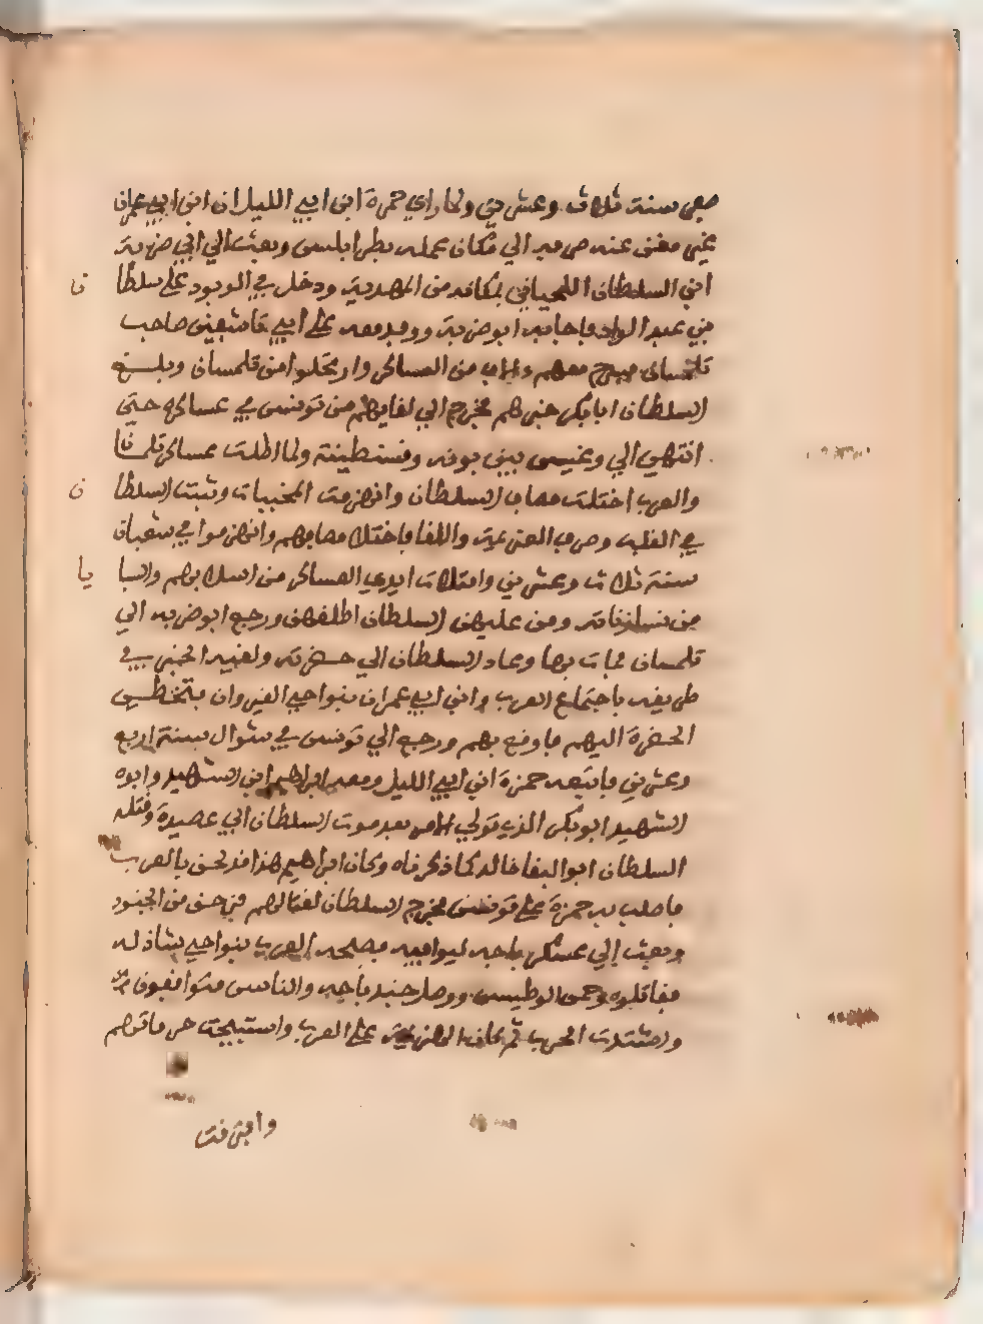 صفر سنة ثلاث وعشرين ولما راى حمزة ابن ابي الليل ان ابن ابي عمران
غير مغن عنه صرفه الي مكان عمله بطرابلس وبعث الي ابي ضربة
ابن السلطان اللحياني بمكانه من المهدية ودخل في الوبود على سلطا نا
بني عبد الواد فاجابه ابو ضربة ووفد معه على ابي تاشفين صاحب
تلمسان فبعث معهم من العساكر وارتحلوا من تلمسان وبلغ
السلطان ابا بكر خبرهم فخرج الي لقايهم من تونس في عساكره حتى
انتهى الي رغيس بين بونه وقسنطينة ولما اطلت عساكر تلمسا نا
والعرب اختلت مصاف السلطان وانهزمت المجنبات وثبت السلطا ن
في القلب وصرف العزيمة واللقا فاختل مصافهم وانهزموا في شعبان
سنة ثلاث وعشرين وامتلات ايدي العساكر من اسلابهم والسبا يا
من نسا زناتة ومن عليهن السلطان اطلقهن ورجع ابو ضربه الي
تلمسان فمات بها وعاد السلطان الي حضرته ولقيه الخبر في
طريقه باجتماع العرب وابن ابي عمران بنواحي القيروان فتخطى
الحضرة اليهم فاوقع بهم ورجع الي تونس في شوال سنة اربع
وعشرين فاتبعه حمزة ابن ابي الليل ومعه ابراهيم ابن الشهيد وابوه
الشهيد ابو بكر الذي تولي الامر بعد موت السلطان ابي عصيدة وقتله
السلطان ابو البقا خالد كما ذكرناه وكان ابراهيم هذا قد لحق بالعرب
فاجلب به حمزة على تونس فخرج السلطان لقتالهم فيمن حف من الجنود
وبعث الي عسكر باجه ليوافيه فصبحه العرب بنواحي شاذله
فقاتلوه وحمى الوطيس ووصل جند باجه والناس متواقفون
واشتدت الحرب ثم كانت الهزيمة على العرب واستبيحت حرماتهم
وافترقت